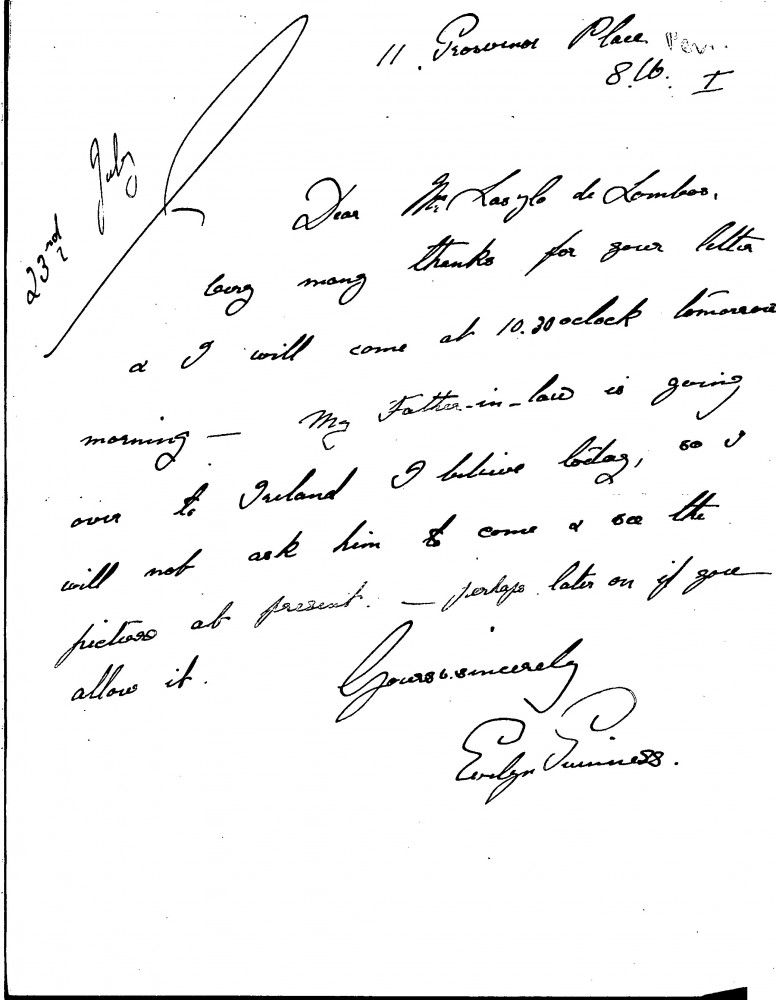 11. Grosvenor Place
S.W. I
23rd July
Dear Mr Laszlo de Lombos,
Very many thanks for your letter
& I will come at 10.30 oclock tomorrow
morning — My Father-in-law is going
over to Ireland I believe today, so I
will not ask him to come & see the
picture at present. — perhaps later on if you
allow it.
Yours v. sincerely
Evelyn Guinness.